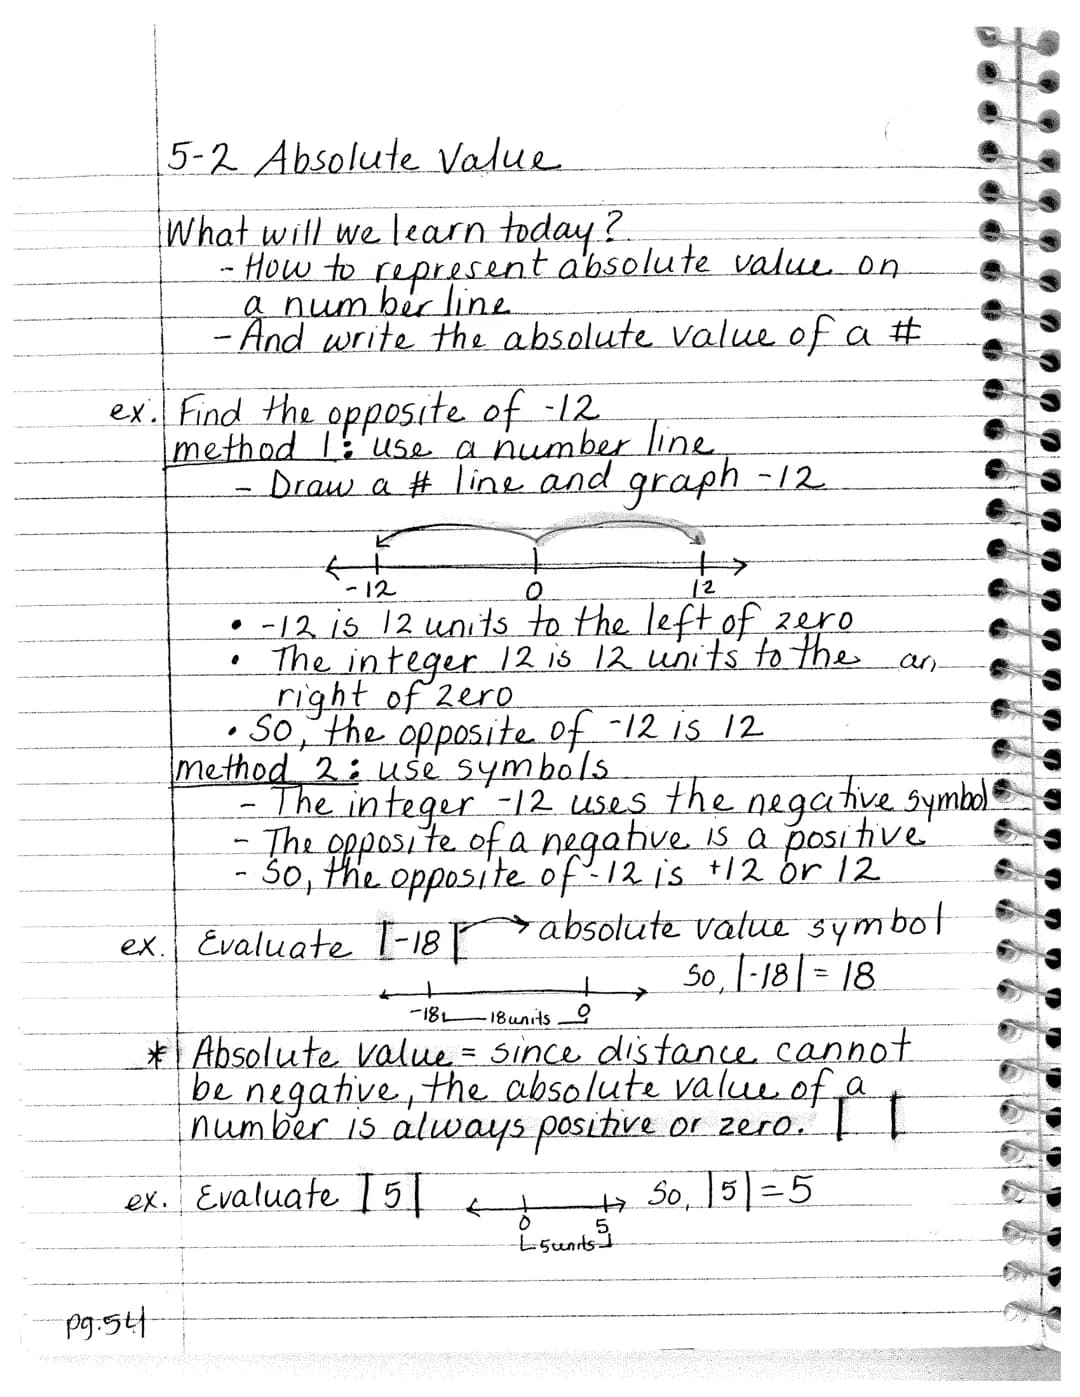 5-2 Absolute Value
What will we learn today?
- How to represent absolute value on
a number line
- And write the absolute value of a #
ex. Find the opposite of -12
method 1: use a number line
- Draw a # line and graph -12
-12 0 12
• -12 is 12 units to the left of zero
• The integer 12 is 12 units to the
right of zero
• So, the opposite of -12 is 12
method 2: use symbols
- The integer -12 uses the negative symbol
- The opposite of a negative is a positive
- So, the opposite of -12 is +12 or 12
ex. Evaluate |-18| → absolute value symbol
So, |-18| = 18
-18 18 units 0
* Absolute value = since distance cannot
be negative, the absolute value of a
number is always positive or zero. | |
ex. Evaluate |5| So, |5| = 5
0 5
5 units
pg. 54